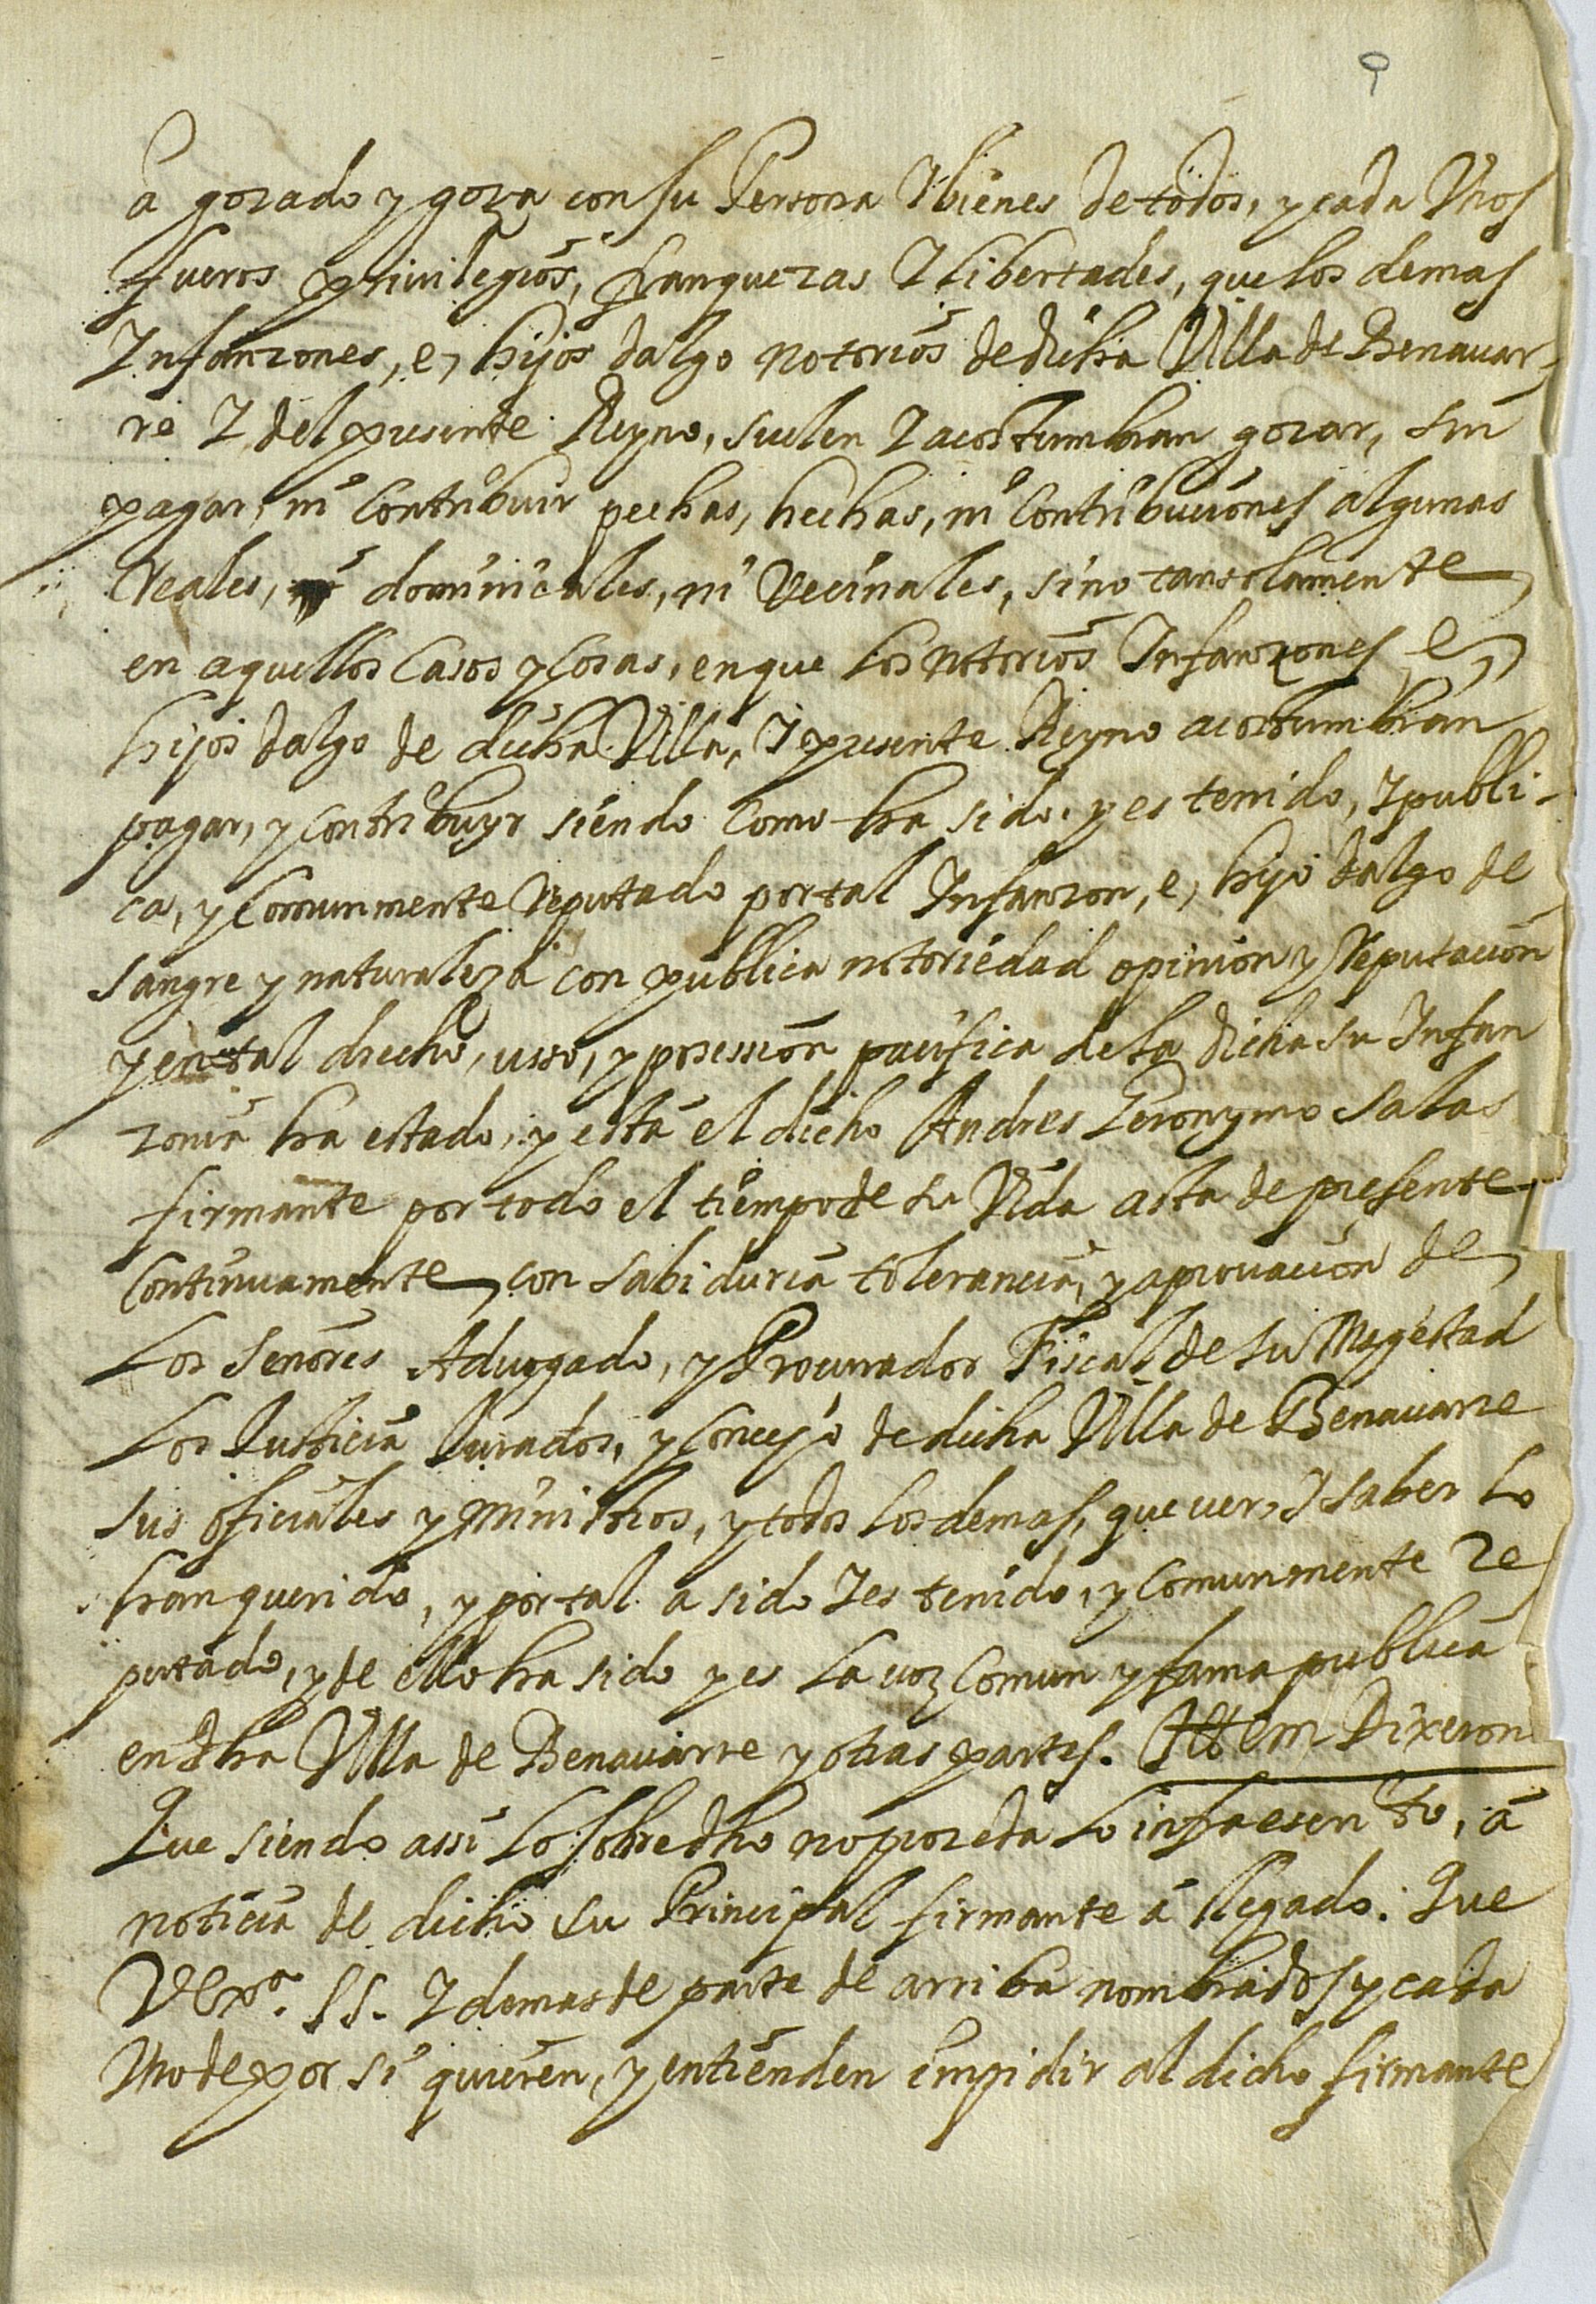 9
a gozado y goza con su Persona Y bienes de todos, y cada Vnos
fueros privilegios, franquezas Y libertades, que los demas
Infanzones, e, hijos dalgo notorios de dicha Villa de Benauar-
re Y del presente Reyno, suelen Y acostumbran gozar, sin
pagar, ni Contribuir pechas, hechas, ni Contribuciones algunas
Reales, ni dominicales, ni Vecinales, sino tansolamente
en aquellos Casos y Cosas, en que Los notorios Infanzones e,
hijos dalgo de dicha Villa, Y presente Reyno acostumbran
pagar, y contribuyr siendo Como ha sido, y es tenido, Y publi-
ca, y Comunmente Reputado por tal Infanzon, e, hijo dalgo de
sangre y naturaleza con publica notoriedad opinion y Reputacion
y en tal drecho, usso, y posession pacifica de la dicha su Infan
zonia ha estado, y está el dicho Andres Geronymo Salas
firmante por todo el tiempo de su Vida asta de presente
Continuamente con sabiduria tolerancia, y aprouacion de
Los Señores Aduogado, y Procurador Fiscal de su Magestad
Los Justicia Jurados, y Concejo de dicha Villa de Benauarre
sus oficiales y ministros, y todos los demas, que ver, Y saber Lo
han querido, y por tal a sido Y es tenido, y Comunmente re
putado, y de ello ha sido y es La uoz Comun y fama publica
en dha Villa de Benauarre y otras partes. Ittem Dixeron
Que siendo assi Lo sobredho no proceda Lo infraescrito, á
noticia de dicho su Principal firmante á llegado. Que
V Exª. SS. Y demas de parte de arriba nombrados y cada
Vno de por si quieren, y entienden impidir al dicho firmante